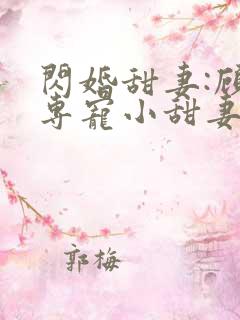 閃婚甜妻:顾
專寵小甜妻
郭梅